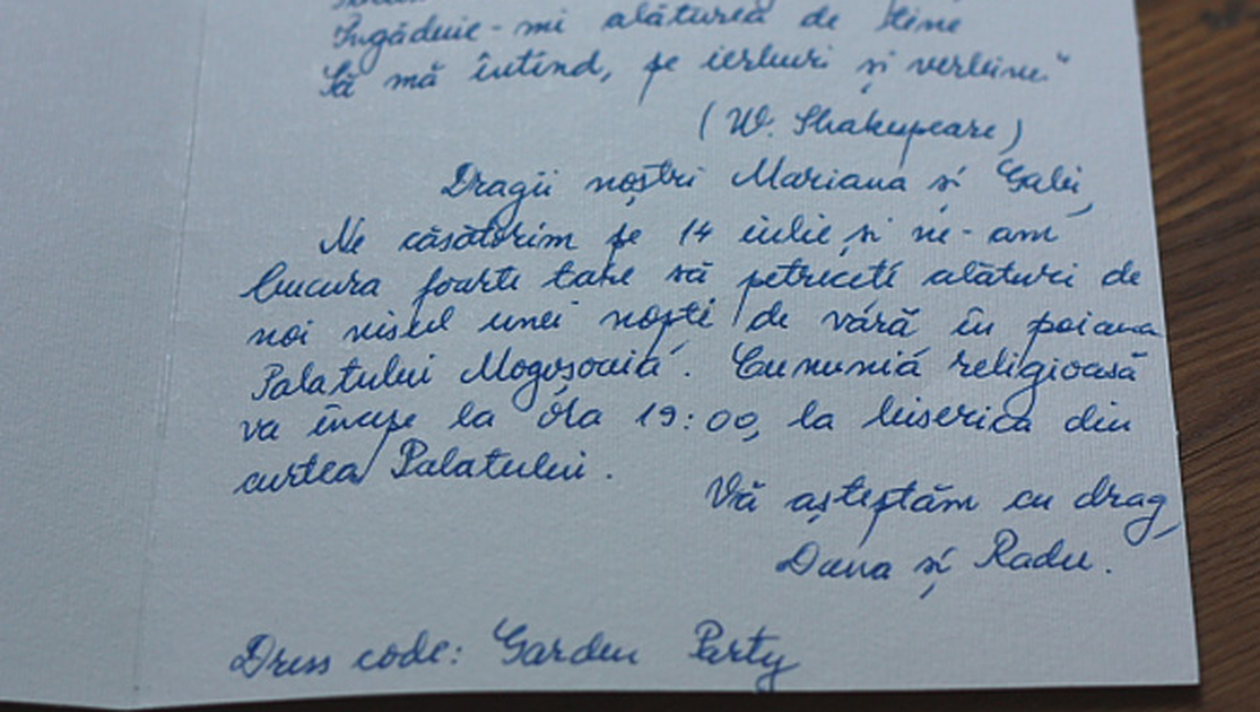 Îngăduie-mi alăturea de tine
Să mă întind, pe ierburi și verbine."
(W. Shakespeare)
Dragii noștri Mariana și Gabi,
Ne căsătorim pe 14 iulie și ne-am
bucura foarte tare să petreceți alături de
noi visul unei nopți de vară în poiana
Palatului Mogoșoaia. Cununia religioasă
va începe la ora 19:00, la biserica din
curtea Palatului.
Vă așteptăm cu drag,
Dana și Radu.
Dress code: Garden Party